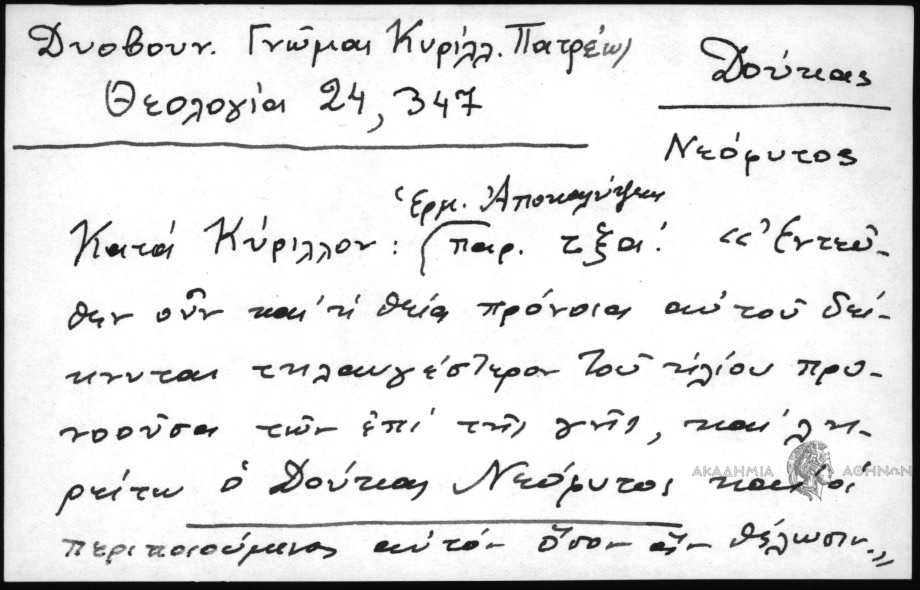 Δυοβουν. Γνῶμαι Κυρίλλ. Πατρέως
Θεολογία 24, 347
Δούκας
Νεόφυτος
Ἑρμ. Ἀποκαλύψεως
Κατά Κύριλλον: (παρ. τξα΄. «Ἐντεῦ-
θεν οὖν καί ἡ θεία πρόνοια αὐτοῦ δεί-
κνυται τηλαυγέστερον τοῦ ἡλίου προ-
νοοῦσα τῶν ἐπί τῆς γῆς, καί λη-
ρείτω ὁ Δούκας Νεόφυτος καί οἱ
περιποιούμενοι αὐτόν ὅσον ἄν θέλωσιν.»
ΑΚΑΔΗΜΙΑ ΑΘΗΝΩΝ